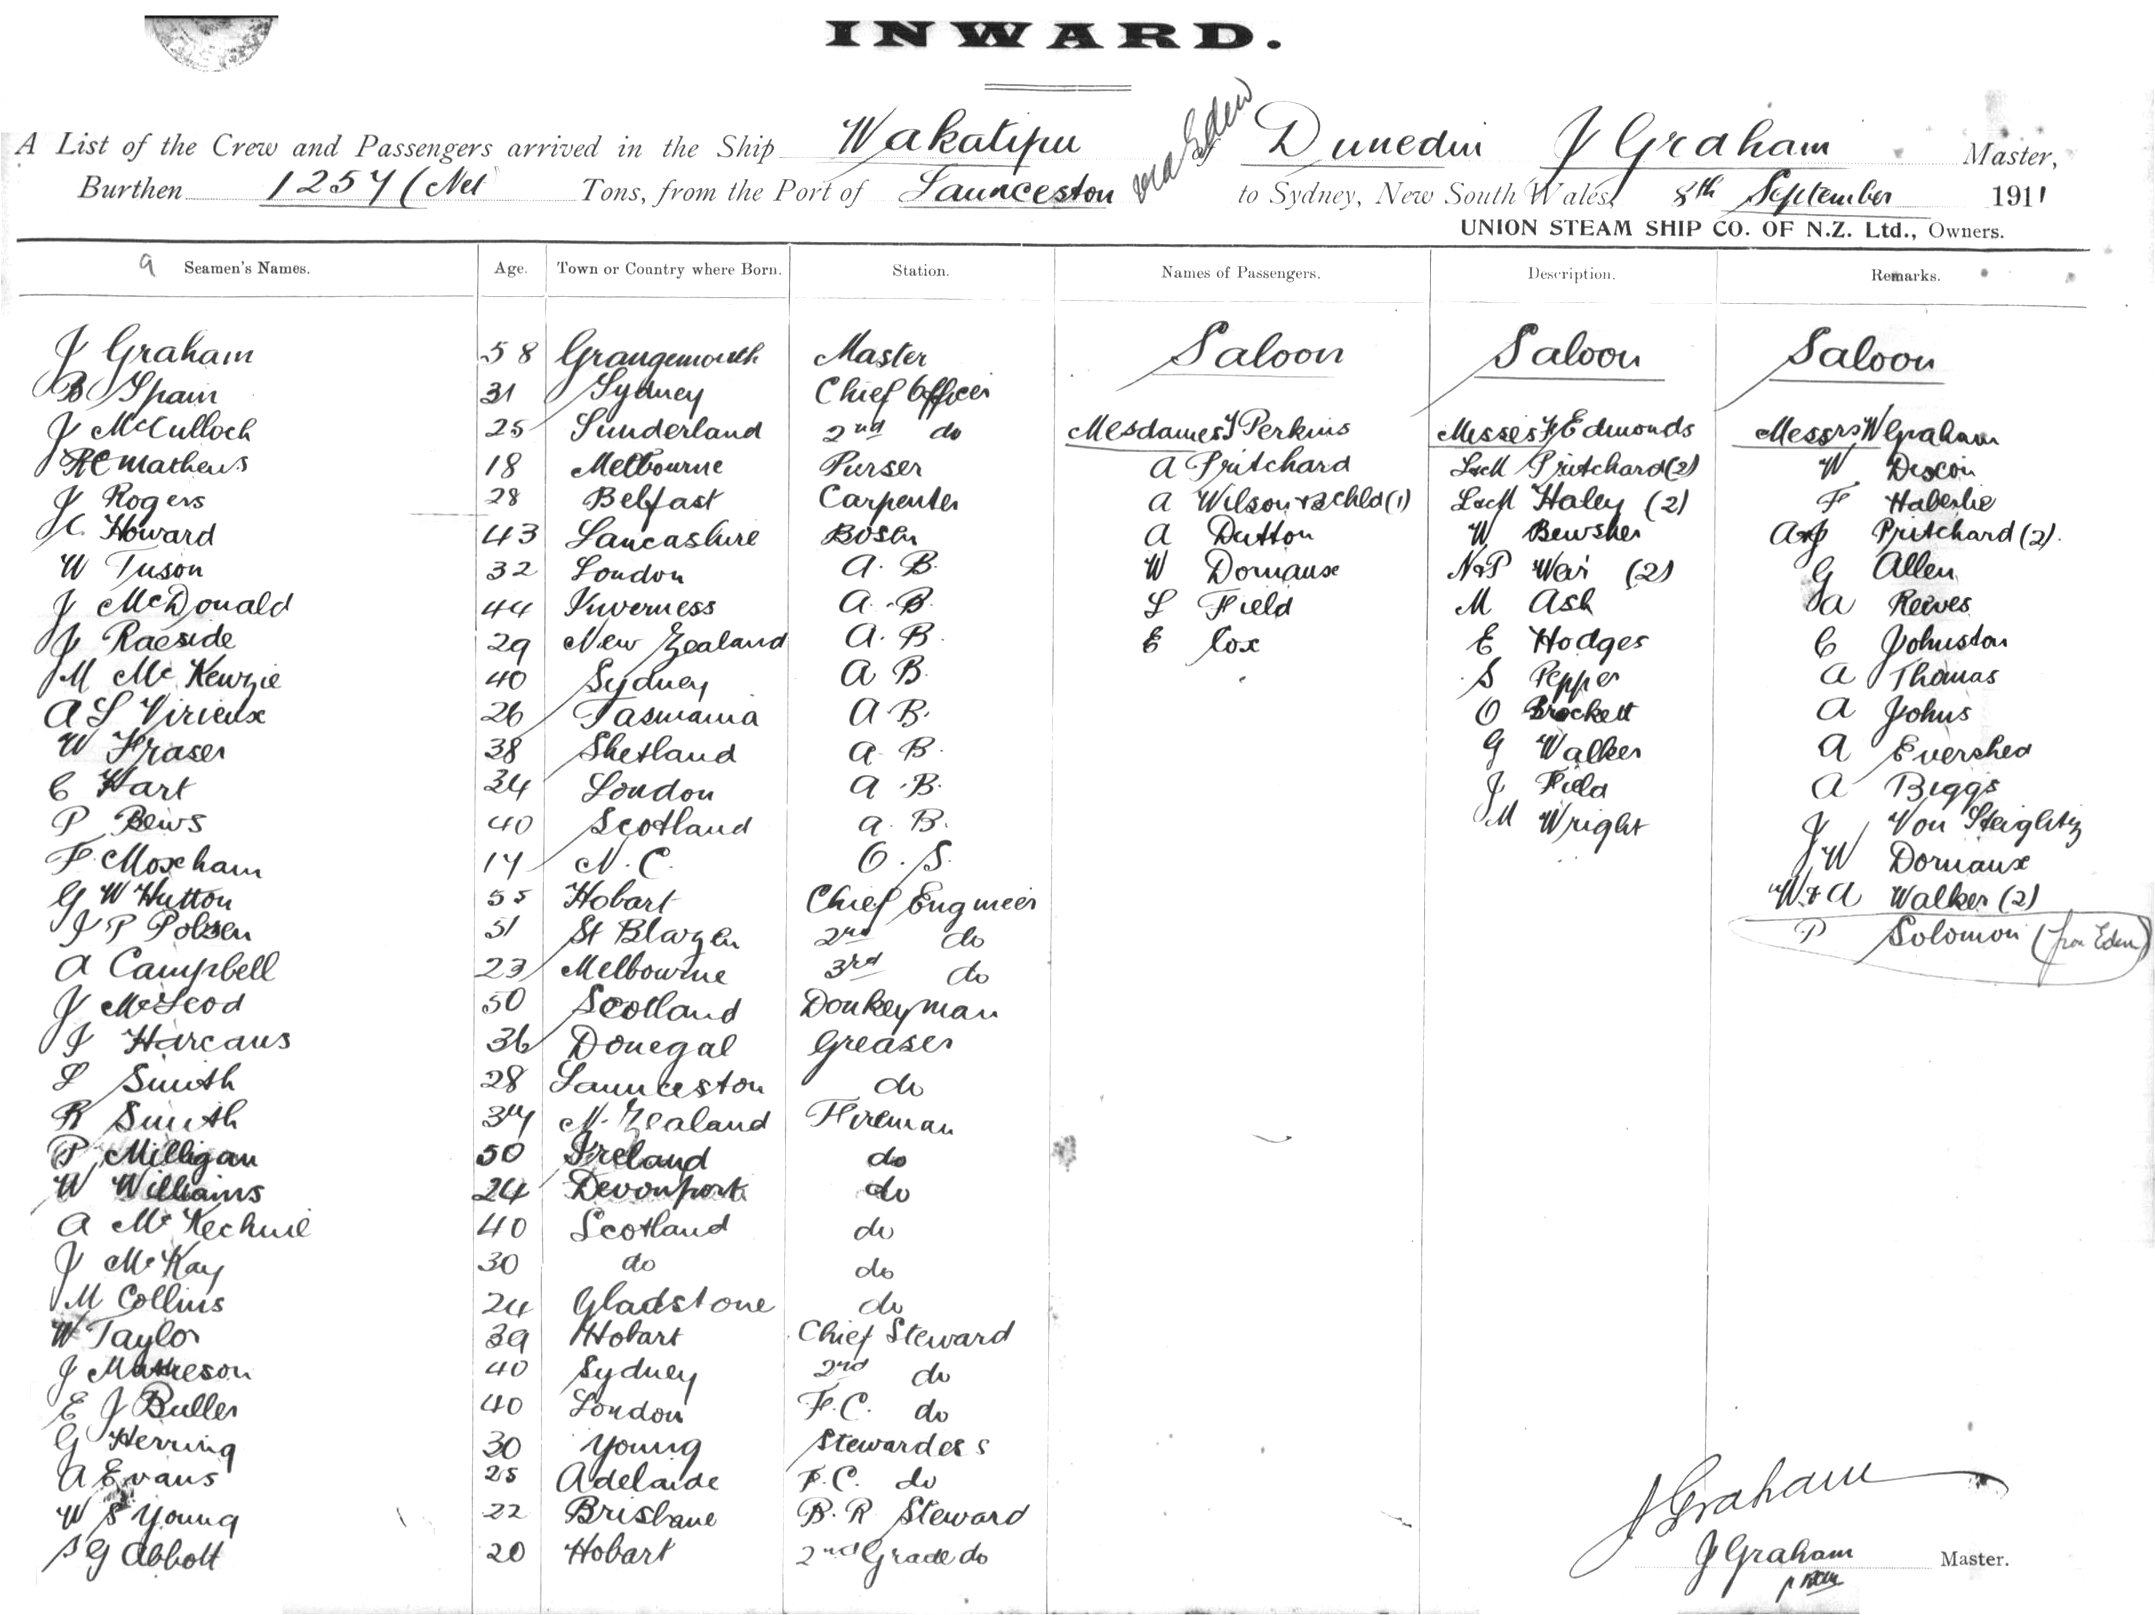 INWARD.
A List of the Crew and Passengers arrived in the Ship Wakatipu via Eden Dunedin J Graham Master,
Burthen 1257 (Net Tons, from the Port of Launceston to Sydney, New South Wales, 8th September 1911
UNION STEAM SHIP CO. OF N.Z. Ltd., Owners.
9 Seamen's Names. Age. Town or Country where Born. Station. Names of Passengers. Description. Remarks.
J Graham 58 Grangemouth Master Saloon Saloon Saloon
B Spain 31 Sydney Chief Officer
J McCulloch 25 Sunderland 2nd do Mesdames J Perkins Misses F Edmonds Messrs W Graham
R C Mathews 18 Melbourne Purser A Pritchard L&M Pritchard (2) W Dixon
J Rogers 28 Belfast Carpenter A Wilson & child (1) L&M Haley (2) F
C Howard 43 Lancashire Bosun A Dutton W Bewsher A&J Pritchard (2).
W Tuson 32 London A. B. W Dornaux N&P Weir (2) G Allen
J McDonald 44 Inverness A. B. L Field M Ash A Reeves
J Raeside 29 New Zealand A. B. E Cox E Hodges C Johnston
M McKenzie 40 Sydney A B. S Pepper A Thomas
A L Virieux 26 Tasmania A. B. O Brockett A Johns
W Fraser 38 Shetland A B. G Walker A Evershed
C Hart 34 London A. B. J Field A Biggs
P Bews 40 Scotland A. B. M Wright J Von Steiglitz
F Moxham 17 N. C. O. S. J W Dornaux
G W Hutton 55 Hobart Chief Engineer W & A Walker (2)
J P Polsen 51 St 2nd do P Solomon (from Eden)
A Campbell 23 Melbourne 3rd do
J McLeod 50 Scotland Donkeyman
J Harcaus 36 Donegal Greaser
L Smith 28 Launceston do
R Smith 34 N. Zealand Fireman
P Milligan 50 Ireland do
W Williams 24 Devonport do
A McKechnie 40 Scotland do
J McKay 30 do do
M Collins 24 Gladstone do
W Taylor 39 Hobart Chief Steward
J Matheson 40 Sydney 2nd do
E J Buller 40 London F. C. do
G Herring 30 Young Stewardess
A Evans 25 Adelaide F. C. do
W S Young 22 Brisbane B. R Steward
S G Abbott 20 Hobart 2nd Grade do
J Graham
J Graham Master.